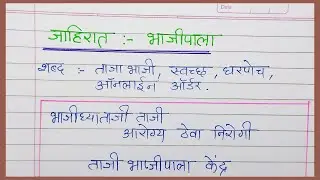 जाहिरात :- भाजीपाला
शब्द :- ताजा भाजी, स्वच्छ, घरपोच,
ऑनलाईन ऑर्डर.
भाजीघ्याताजी ताजी
आरोग्य ठेवा निरोगी
ताजी भाजीपाला केंद्र